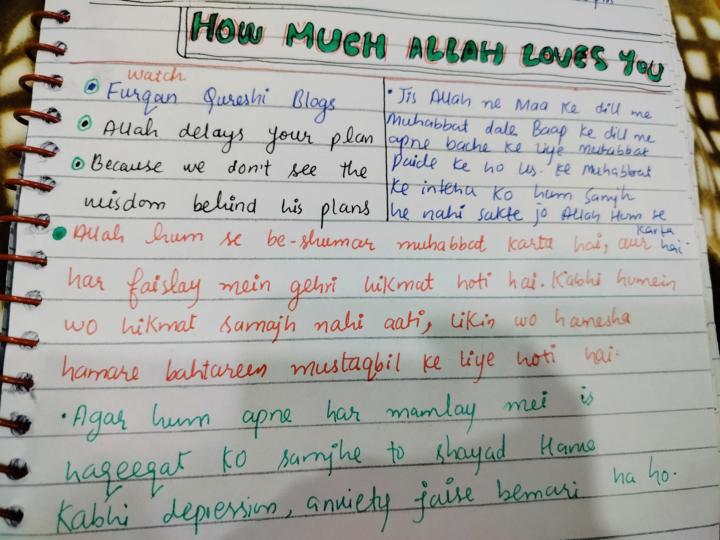 HOW MUCH ALLAH LOVES YOU
watch
Furqan Qureshi Blogs
Allah delays your plan
Because we don't see the
wisdom behind his plans
Jis Allah ne Maa ke dill me
Muhabbat dale Baap ke dill me
apne bache ke liye muhabbat
Paida ke ho us. ke Muhabbat
ke inteha ko hum samjh
he nahi sakte jo Allah Hum se
karta
hai.
Allah hum se be-shumar muhabbat karta hai, aur
har faislay mein gehri hikmat hoti hai. Kabhi humein
wo hikmat samajh nahi aati, likin wo hamesha
hamare bahtareen mustaqbil ke liye hoti hai.
Agar hum apne har mamlay mei is
haqeeqat ko samjhe to shayad Hame
Kabhi depression, anxiety jaise bemari na ho.